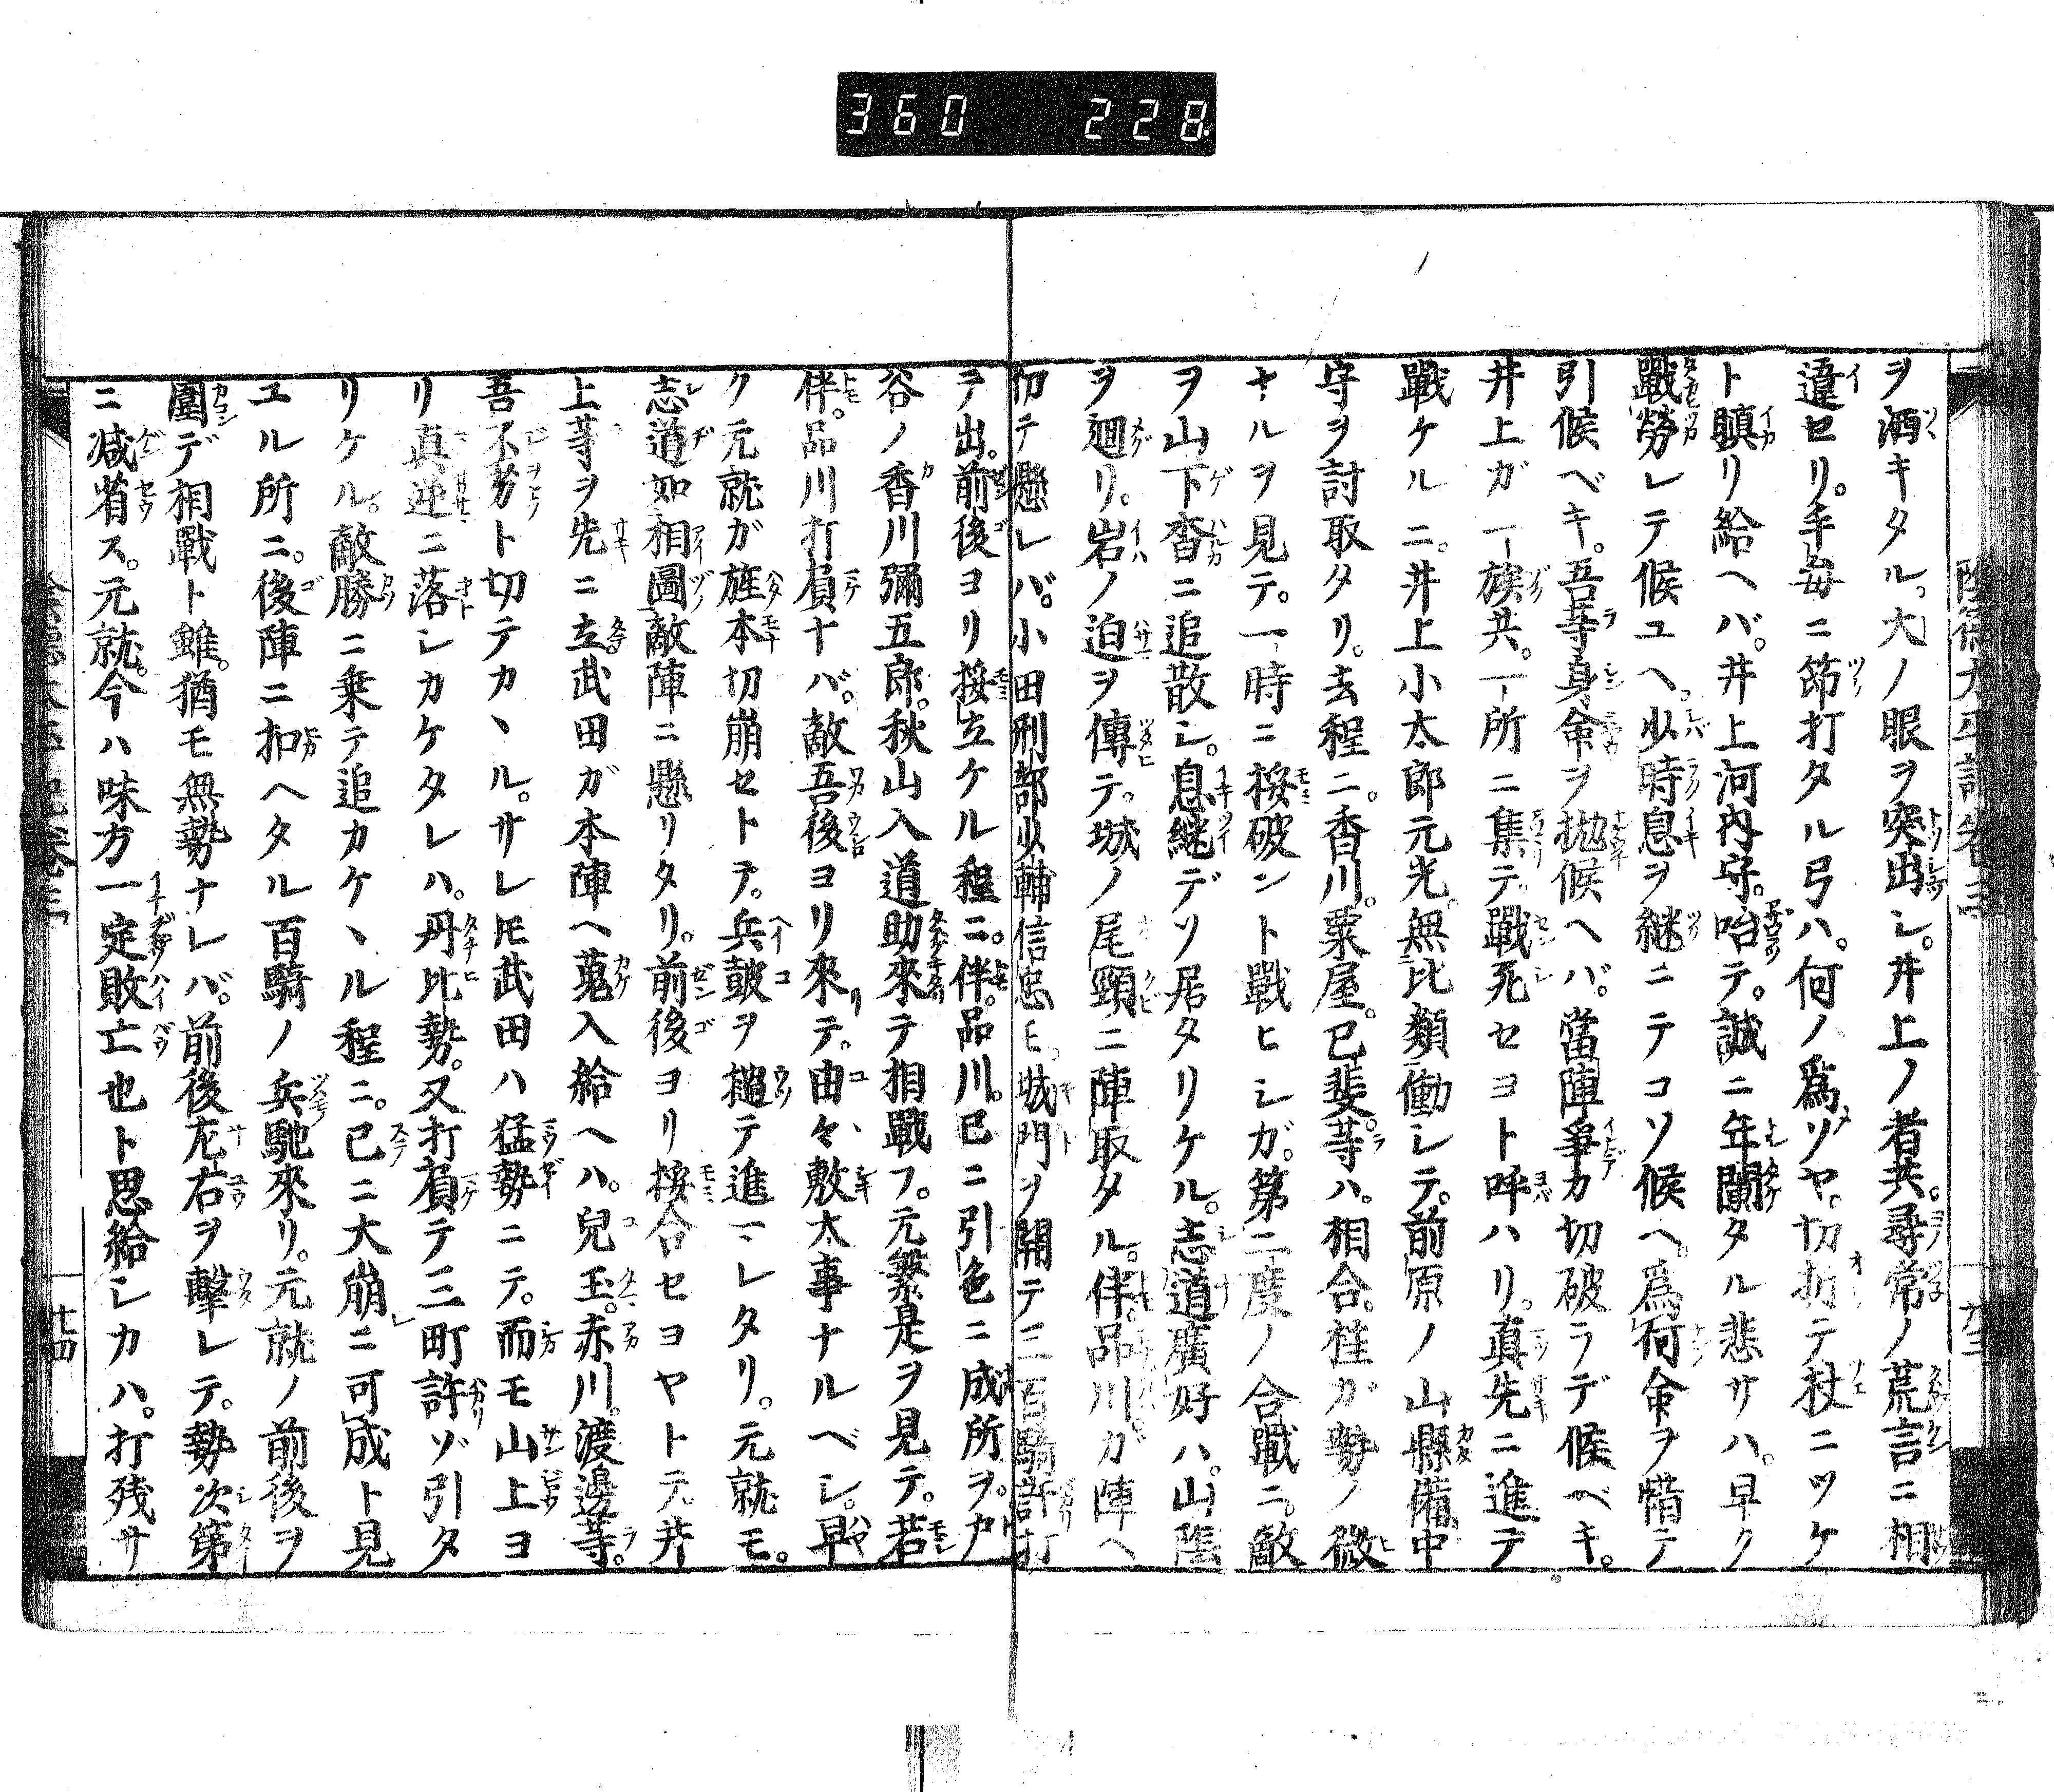 360 228
ヲ洒キタル。大ノ眼ヲ突出シ。井上ノ者共。尋常ノ荒言ニ相
違セリ。手毎ニ節打タル弓ハ。何ノ爲ゾヤ。切折テ杖ニツケ
ト瞋リ給ヘバ。井上河内守。咍テ。誠ニ年闌タル悲サハ。早ク
戰勞レテ候ユヘ。少時息ヲ継ニテコソ候ヘ。爲何命ヲ惜テ
引候ベキ。吾等身命ヲ抛候ヘバ。當陣爭カ切破ラデ候ベキ。
井上ガ一族共。一所ニ集テ。戰死セヨト呼ハリ。真先ニ進テ
戰ケルニ。井上小太郎元光。無比類働レテ。前原ノ山縣備中
守ヲ討取タリ。去程ニ。香川。粟屋。已斐。等ハ。相合。桂ガ勢ノ微
ナルヲ見テ。一時ニ挼破ント戰ヒシガ。第二度ノ合戰ニ。敵
ヲ山下沓ニ追散シ。息継デソ居タリケル。志道廣好ハ。山陰
ヲ廻リ。岩ノ迫ヲ傳テ。城ノ尾頸ニ陣取タル。伴。品川ガ陣ヘ
切テ懸レバ。小田刑部少輔信忠モ。城門ヲ開テ三百騎許打
テ出。前後ヨリ挼立ケル程ニ。伴。品川。已ニ引色ニ成所ヲ。戸
谷ノ香川彌五郎。秋山入道助來テ相戰フ。元繁是ヲ見テ。若
伴。品川打負ナバ。敵吾後ヨリ來テ。由々敷大事ナルベシ。早
ク元就ガ旌本切崩セトテ。兵皷ヲ撾テ進マレタリ。元就モ。
志道如相圖敵陣ニ懸リタリ。前後ヨリ挼合セヨヤトテ。井
上等ヲ先ニ立。武田ガ本陣ヘ蒐入給ヘハ。兒玉。赤川。渡邊等。
吾不劣ト切テカヽル。サレ𪜈武田ハ猛勢ニテ。而モ山上ヨ
リ真逆ニ落シカケタレハ。丹比勢。又打負テ三町許ゾ引タ
リケル。敵勝ニ乗テ追カケヽル程ニ。已ニ大崩ニ可成ト見
ユル所ニ。後陣ニ扣ヘタル百騎ノ兵馳來リ。元就ノ前後ヲ
圍デ相戰ト雖。猶モ無勢ナレバ。前後左右ヲ擊レテ。勢次第
ニ减省ス。元就。今ハ味方一定敗亡也ト思給シカハ。打残サ
廿四